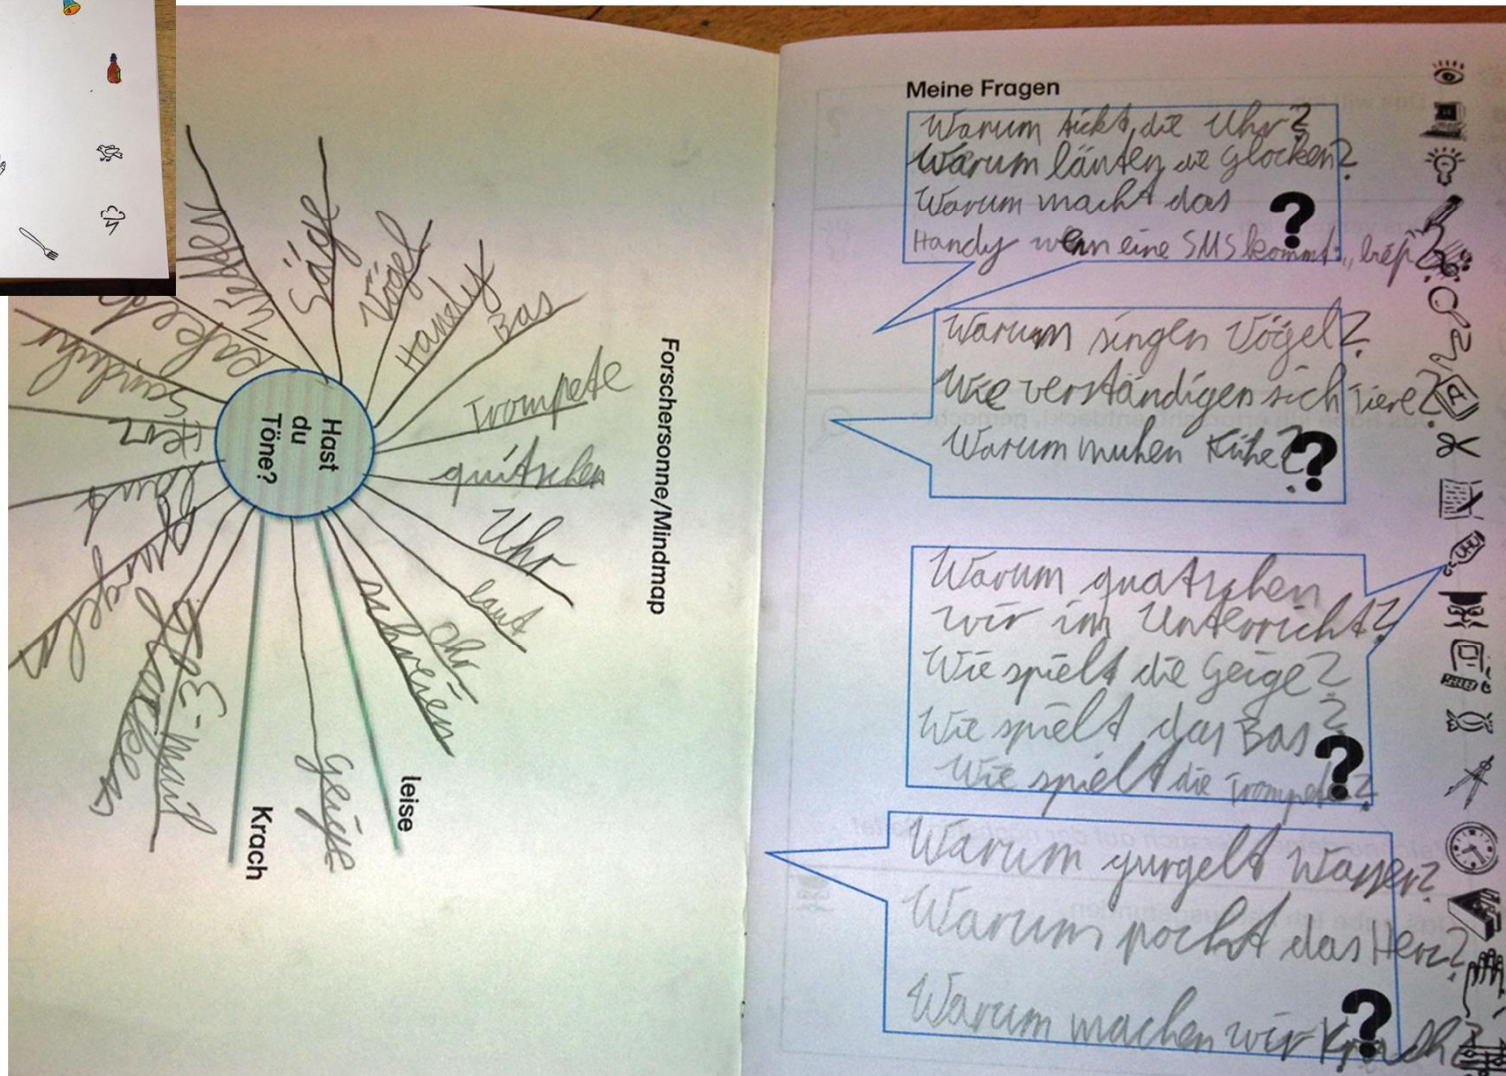 Forschersonne/Mindmap
Hast
du
Töne?
Wecker
Säge
Vögel
Handy
Bas
Trompete
quitschen
Uhr
laut
Ohr
schreien
leise
Geige
Krach
E-mail
gurgeln
laut
Sanduhr
Rakete
Meine Fragen
Warum tickt die Uhr?
Warum läuten die Glocken?
Warum macht das
Handy wenn eine SMS kommt: „biep“?
Warum singen Vögel?
Wie verständigen sich Tiere?
Warum muhen Kühe?
?
Warum quatschen
wir im Unterricht?
Wie spielt die Geige?
Wie spielt das Bas?
Wie spielt die Trompete?
Warum gurgelt Wasser?
Warum pocht das Herz?
Warum machen wir Krach